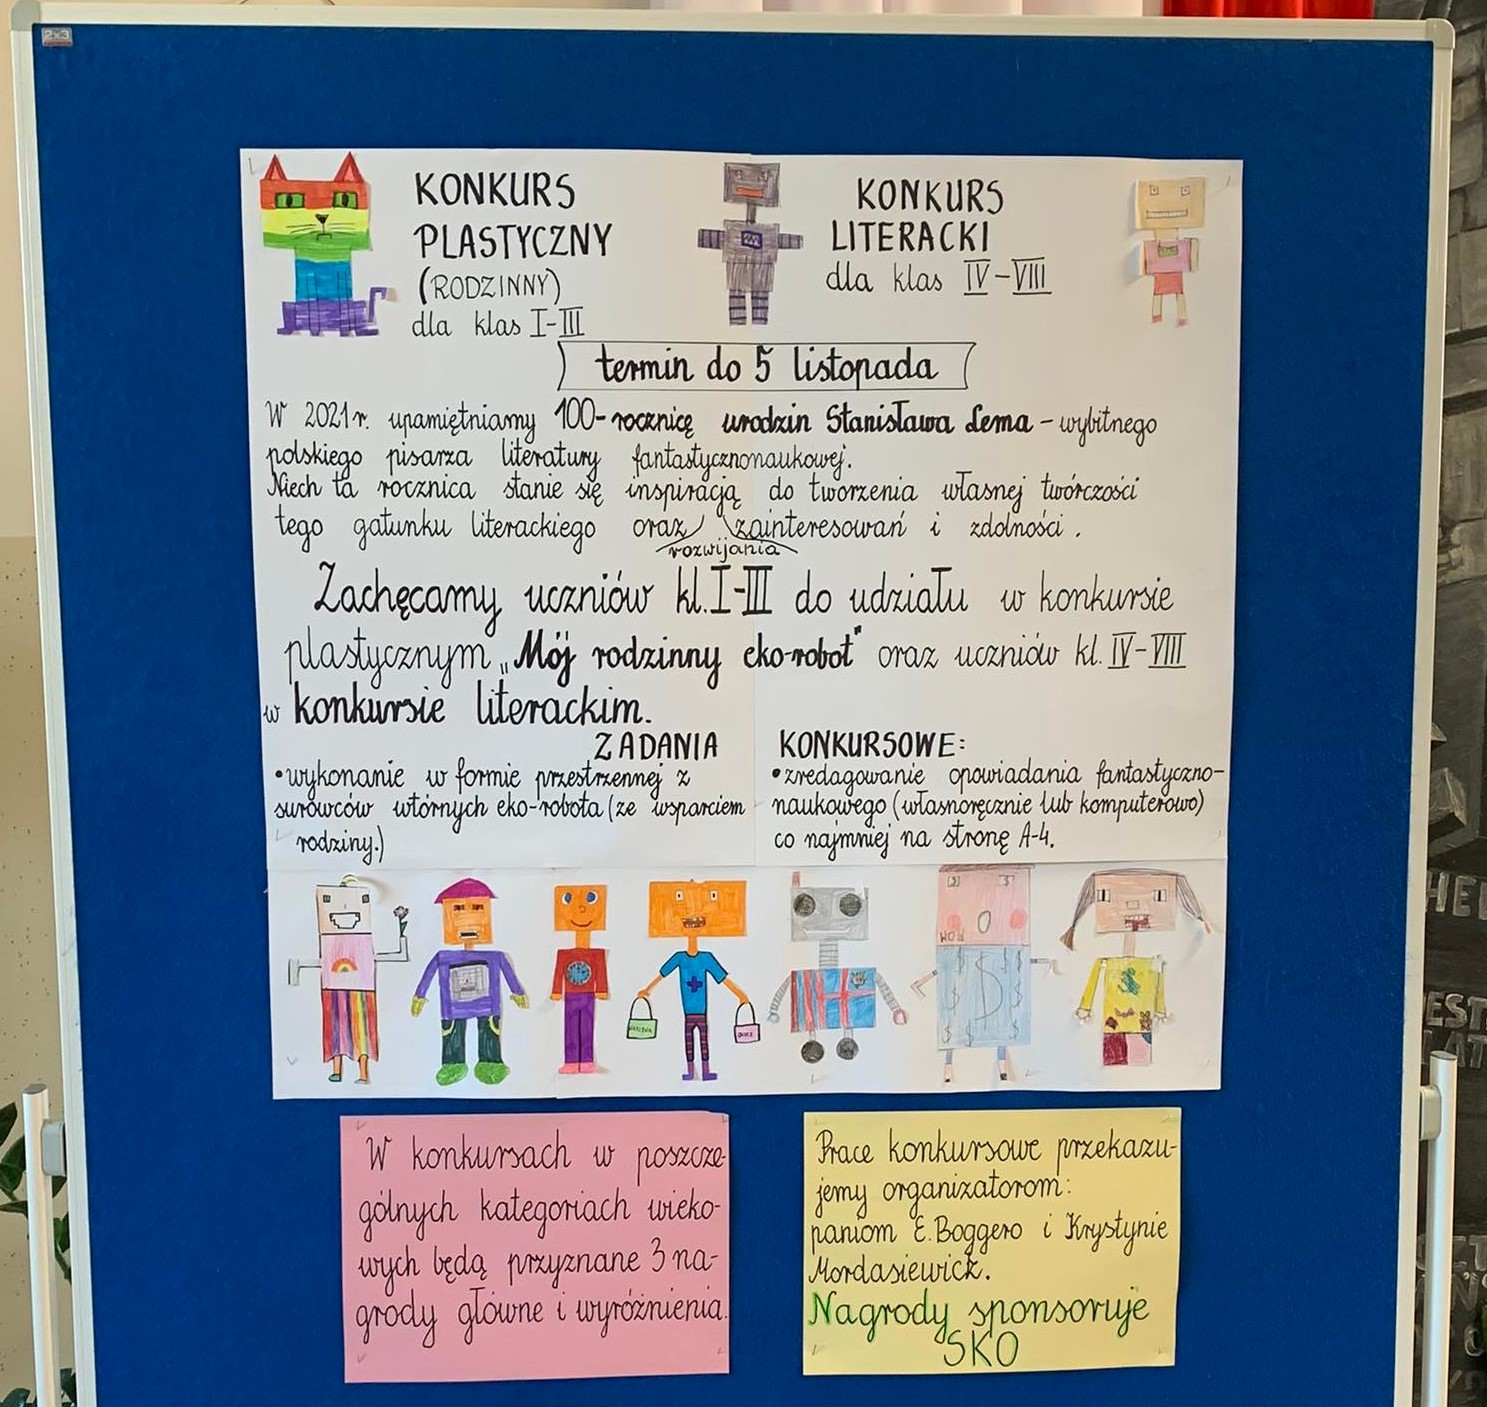 2x3
KONKURS
PLASTYCZNY
(RODZINNY)
dla klas I-III
KONKURS
LITERACKI
dla klas IV-VIII
termin do 5 listopada
W 2021r. upamiętniamy 100-rocznicę urodzin Stanisława Lema - wybitnego
polskiego pisarza literatury fantastycznonaukowej.
Niech ta rocznica stanie się inspiracją do tworzenia własnej twórczości
tego gatunku literackiego oraz zainteresowań i zdolności.
rozwijania
Zachęcamy uczniów kl. I-III do udziału w konkursie
plastycznym „Mój rodzinny eko-robot" oraz uczniów kl. IV-VIII
w konkursie literackim.
ZADANIA KONKURSOWE:
•wykonanie w formie przestrzennej z
surowców wtórnych eko-robota (ze wsparciem
rodziny.)
•zredagowanie opowiadania fantastyczno-
naukowego (własnoręcznie lub komputerowo)
co najmniej na stronę A-4.
WOW
$
W konkursach w poszcze-
gólnych kategoriach wieko-
wych będą przyznane 3 na-
grody główne i wyróżnienia.
Prace konkursowe przekazu-
jemy organizatorom:
paniom E. Boggero i Krystynie
Mordasiewicz.
Nagrody sponsoruje
SKO